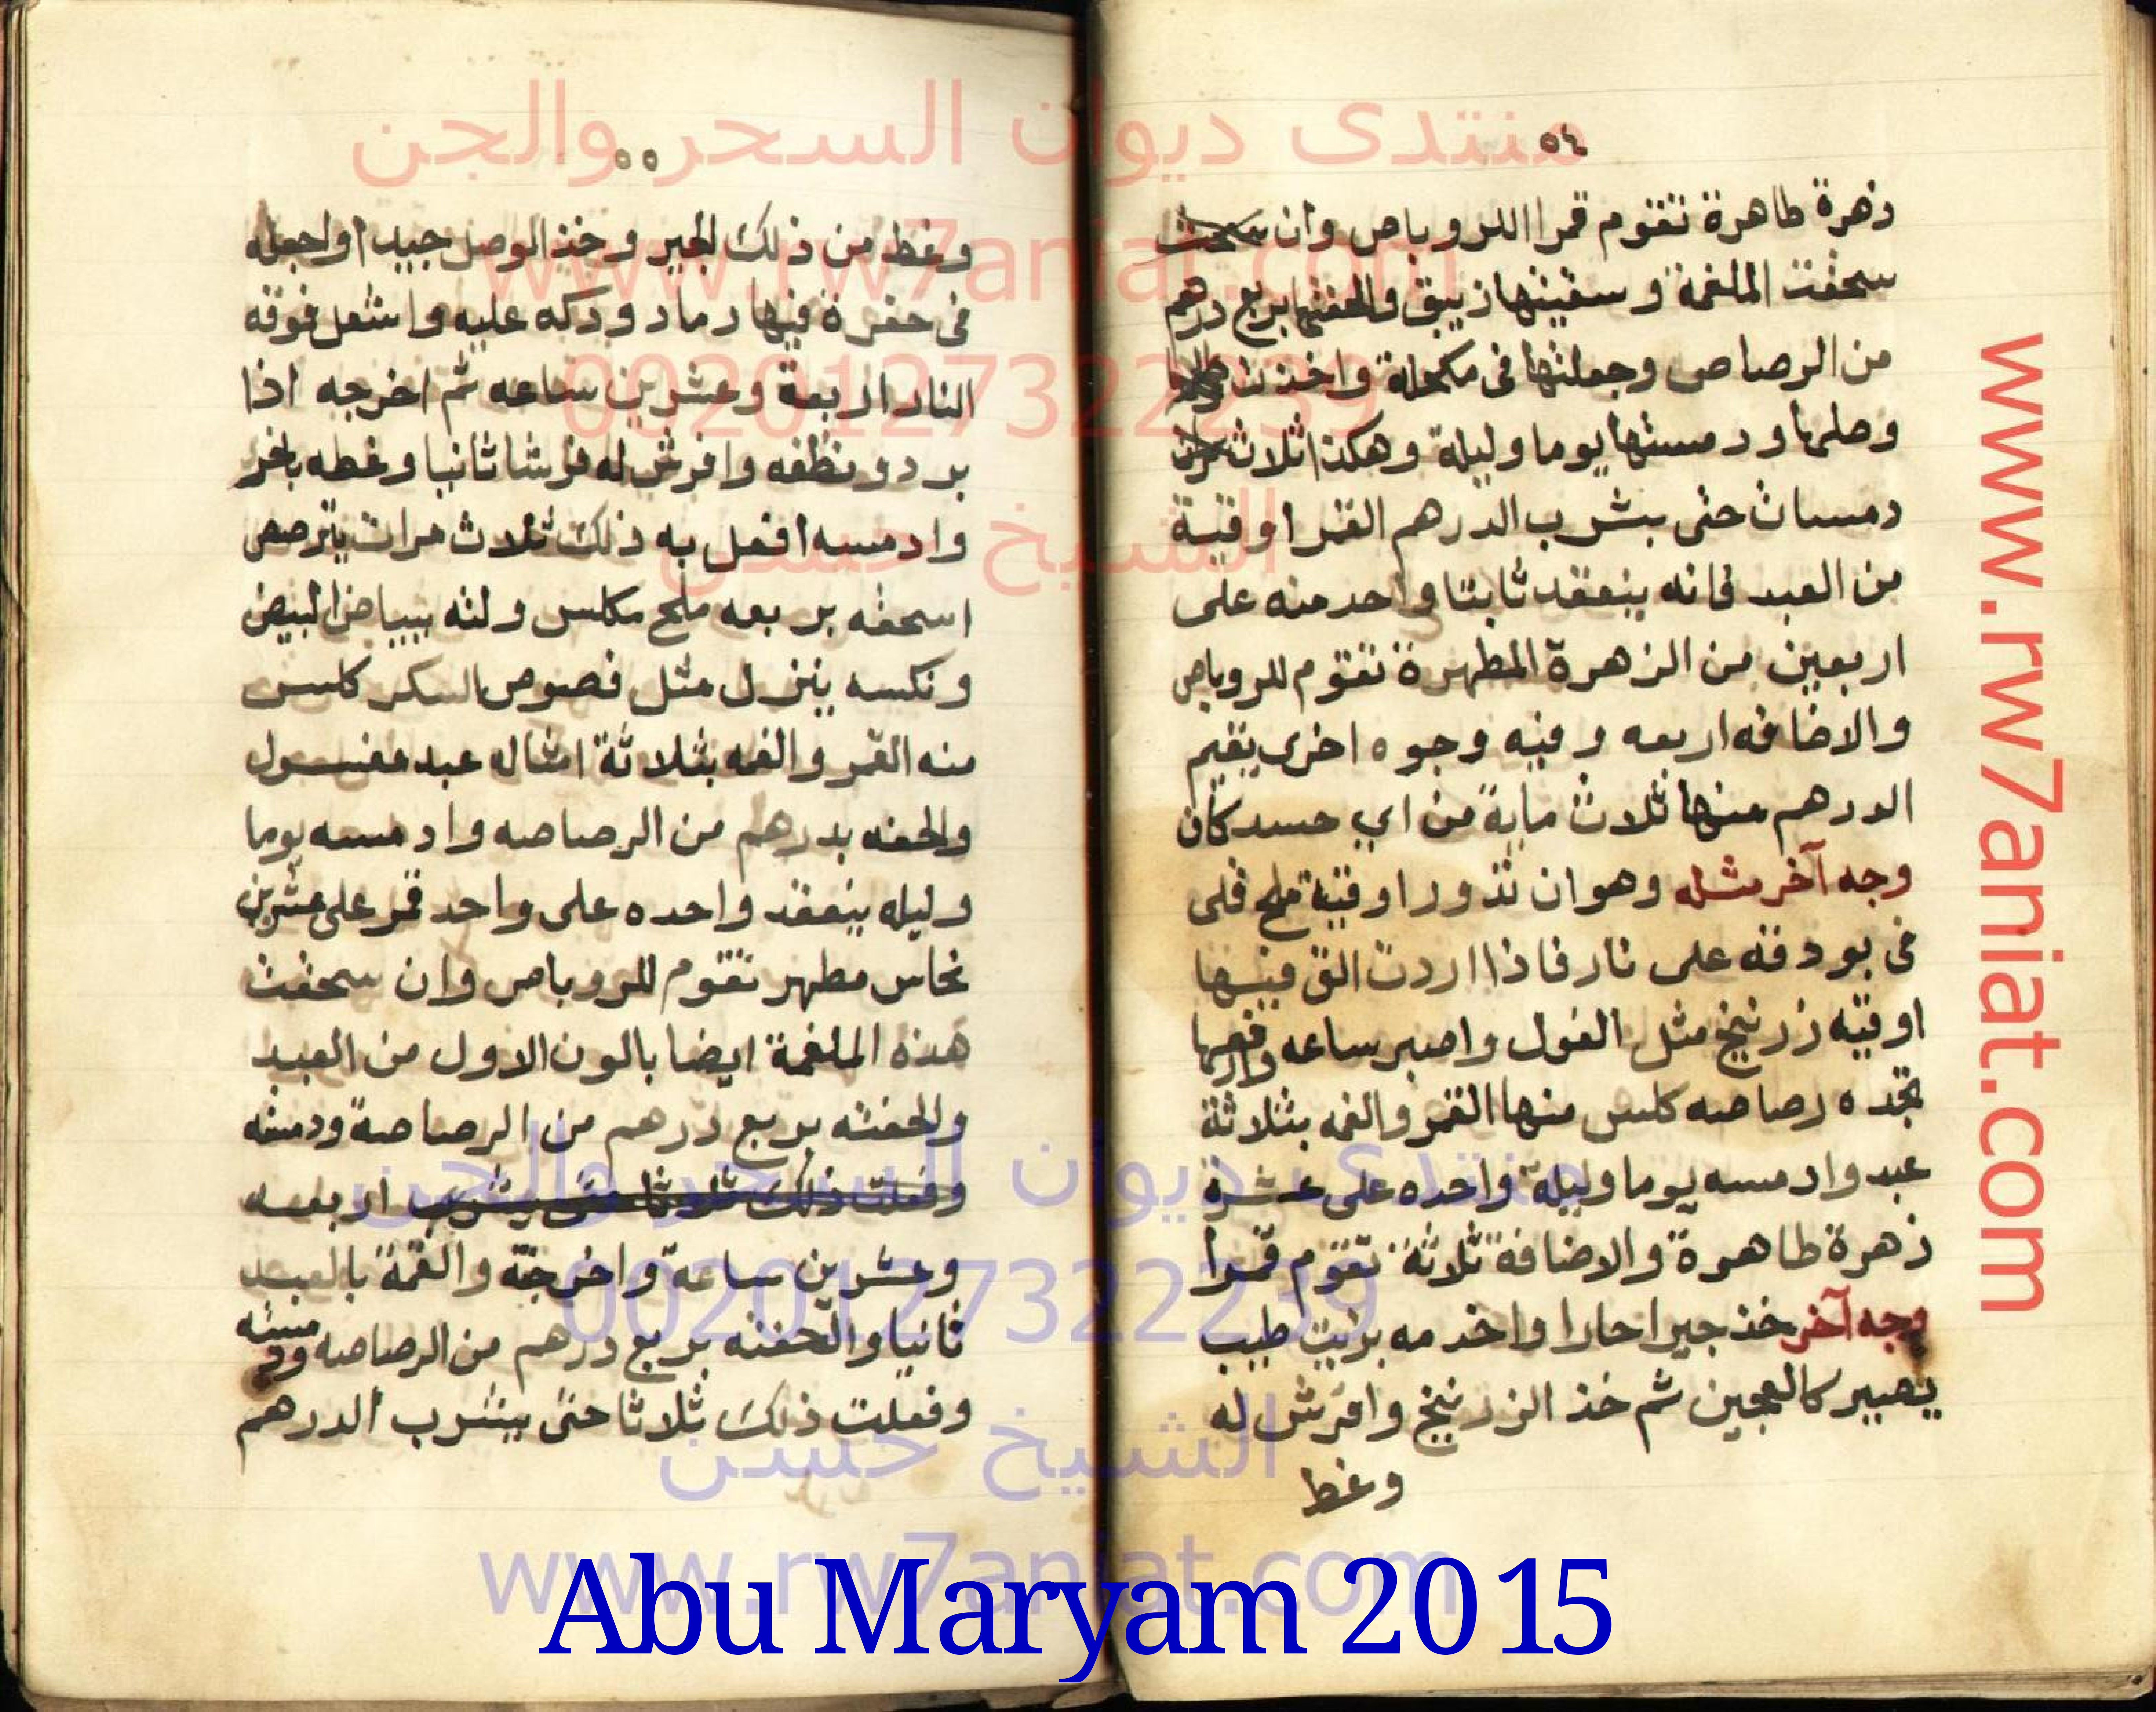 ٥٤
زهرة طاهرة تقوم قمرا للروباص وان
سحقت الملغمة وسقيتها زيبق والحقتها بربع درهم
من الرصاص وجعلتها في مكحلة واخذت
وصلها ودمستها يوما وليلة وهكذا ثلاث
دمسات حتى يشرب الدرهم القمر اوقية
من العبد فانه ينعقد ثابتا واحد منه على
اربعين من الزهرة المطهرة تقوم للروباص
والاضافه اربعه وفيه وجوه اخرى يقيم
الدرهم منها ثلاث ماية من اي حسد كان
وجه آخر مثله وهو ان تذور اوقية ملح قلى
فى بودقه على نار فاذا اردت الق فيها
اوقيه زرنيخ مثل الفول واصبر ساعه وارفعها
تجده رصاصه كلس منها القمر والغمه بثلاثة
عبد وادمسه يوما وليلة واحده على عشرة
زهرة طاهرة والاضافة ثلاثة تقوم قمرا
وجه آخر خذ جيرا حارا واخدمه بزيت طيب
يصير كالعجين ثم خذ الزرنيخ وافرش له
وغط
٥٥
وغط من ذلك الجير وخذ الوصل جيدا واجعله
فى حفرة فيها رماد ودكه عليه واشعل فوقه
النار اربعة وعشرين ساعه ثم اخرجه اذا
برد ونظفه وافرش له فرشا ثانيا وغطه
وادمسه افعل به ذلك ثلاث مرات يترصص
اسحقه بربعه ملح مكلس ولته ببياض البيض
ونكسه ينزل مثل فصوص السكر كلس
منه القمر والغمه بثلاثة امثاله عبد مغسول
والحقه بدرهم من الرصاصه وادمسه يوما
وليله ينعقد واحده على واحد قمر على عشرين
نحاس مطهر تقوم للروباص وان سحقت
هذه الملغمة ايضا بالون الاول من العبد
والحقته بربع درهم من الرصاصة ودمسته
وفعلت ذلك ثلاثا حتى يشرب اربعه
وعشرين ساعة واخرجته والغمة بالعبد
ثانيا والحقته بربع درهم من الرصاصه ودمسته
وفعلت ذلك ثلاثا حتى يشرب الدرهم
منتدى ديوان السحر والجن
www.rw7aniat.com
00201273222239
الشيخ حسن
منتدى ديوان السحر والجن
00201273222239
الشيخ حسن
www.rw7aniat.com
www.rw7aniat.com
Abu Maryam 2015